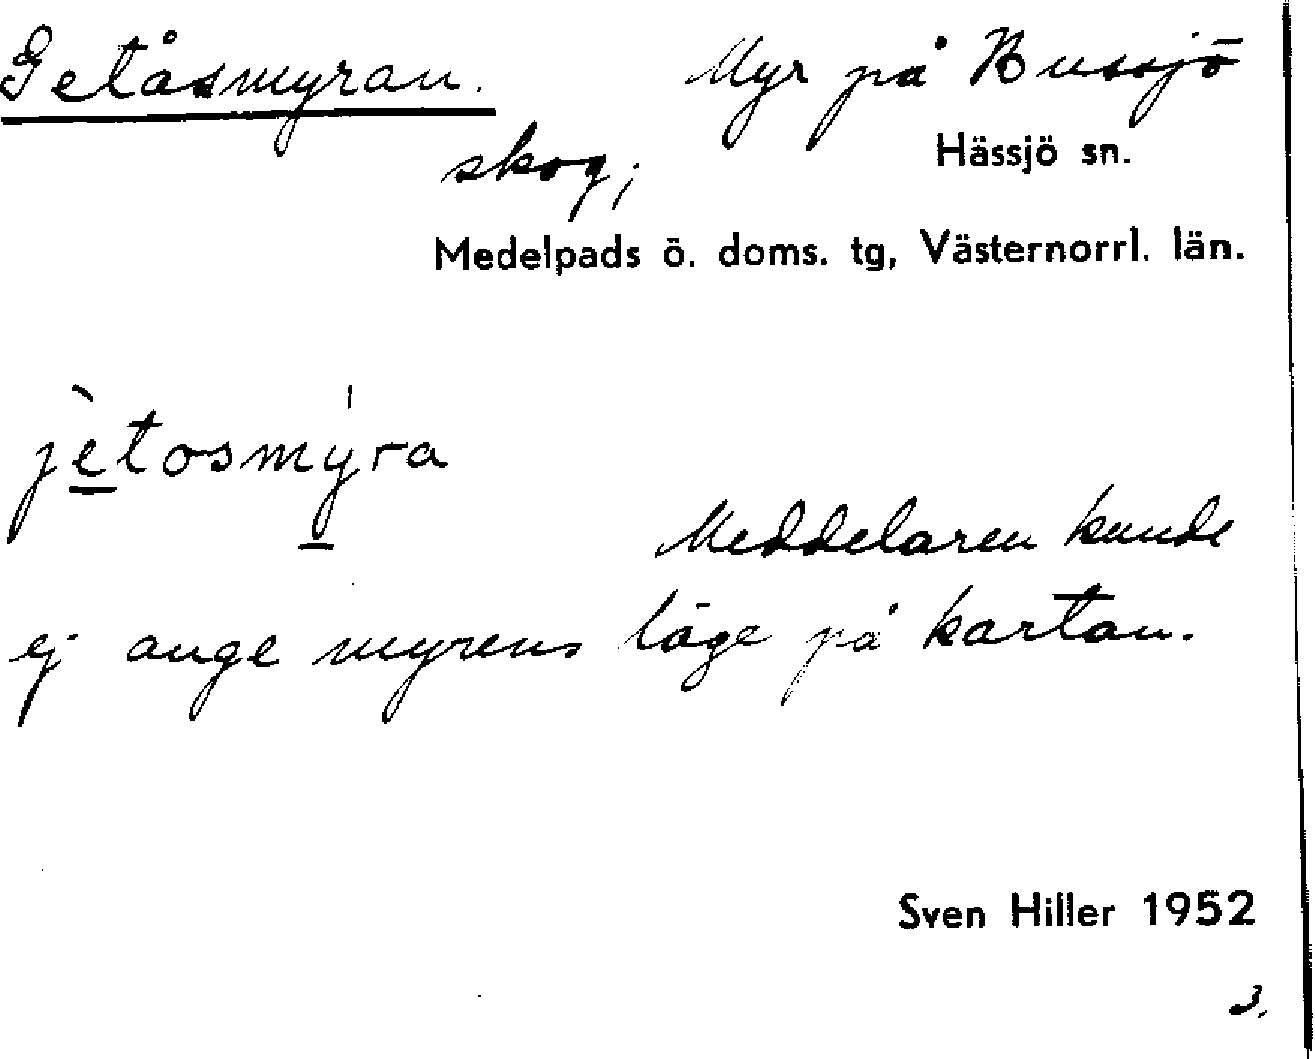 Getåsmyran. Myr på Bussjö
skog; Hässjö sn.
Medelpads ö. doms. tg, Västernorrl. län.
jè̱tosmy̱̍ra
Meddelaren kunde
ej ange myrens läge på kartan.
Sven Hiller 1952
3.